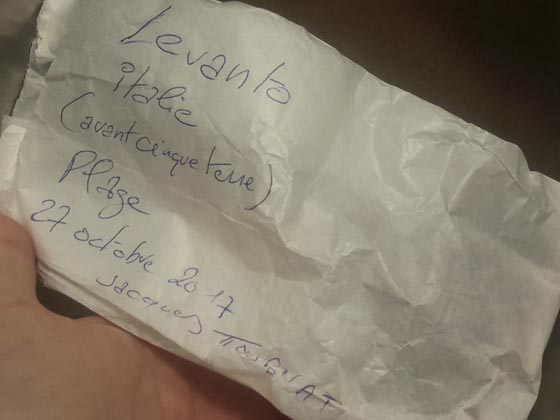 Levanto
italie
(avant cinque terre)
Plage
27 octobre 2017
Jacques